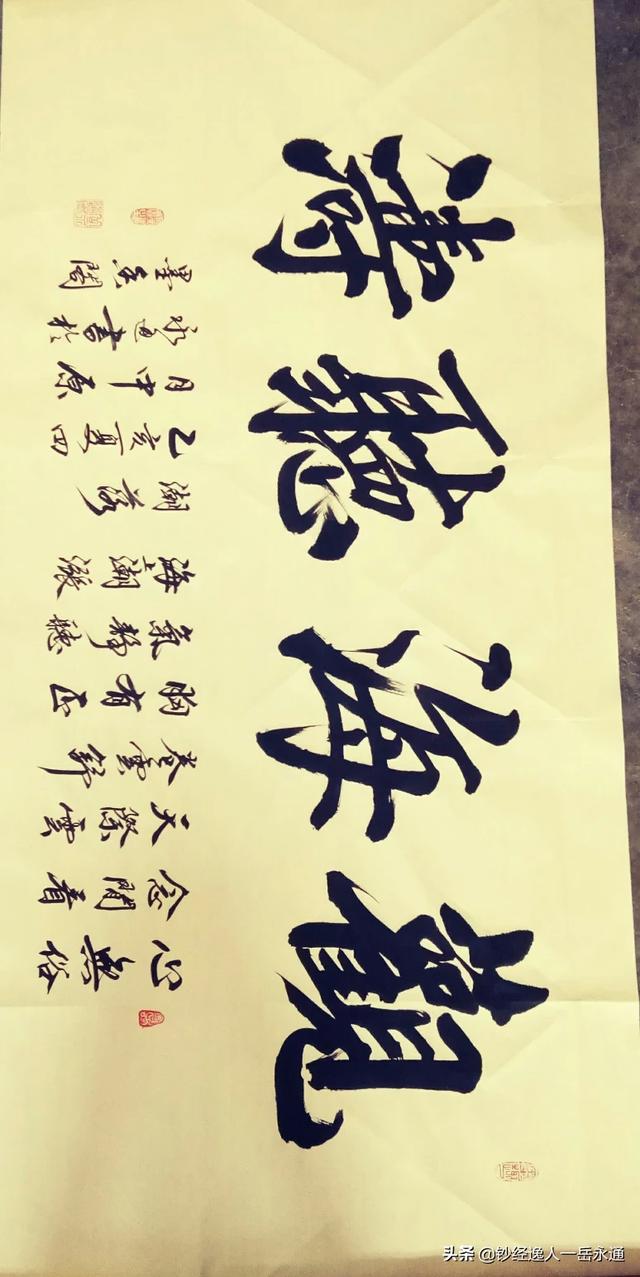 觀海聽濤
心無俗
念閒看
天際雲
卷雲舒
胸有正
氣靜聽
海上潮漲
潮落
乙亥夏四
月中原
永通書於
墨香閣
头条 @钞经逸人一岳永通